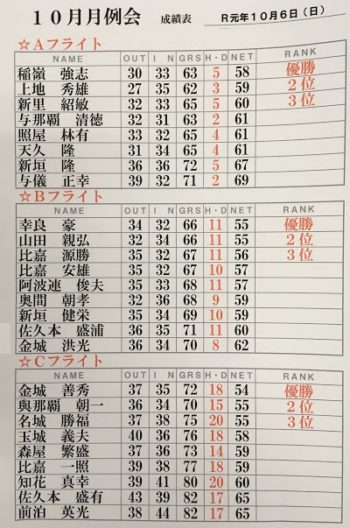 10月月例会 成績表 R元年10月6日(日)
☆Aフライト
NAME OUT I N GRS H・D NET RANK
稲嶺 強志 30 33 63 5 58 優勝
上地 秀雄 27 35 62 3 59 2位
新里 紹敏 32 33 65 5 60 3位
与那覇 清徳 32 31 63 2 61
照屋 林有 33 32 65 4 61
天久 隆 31 34 65 4 61
新垣 隆 36 36 72 5 67
与儀 正幸 39 32 71 2 69
☆Bフライト
NAME OUT I N GRS H・D NET RANK
幸良 豪 34 32 66 11 55 優勝
山田 親弘 32 34 66 11 55 2位
比嘉 源勝 35 32 67 11 56 3位
比嘉 安雄 35 32 67 10 57
阿波連 俊夫 35 33 68 11 57
奥間 朝孝 32 36 68 9 59
新垣 健栄 35 34 69 10 59
佐久本 盛浦 36 35 71 11 60
金城 洪光 36 34 70 8 62
☆Cフライト
NAME OUT I N GRS H・D NET RANK
金城 善秀 37 35 72 18 54 優勝
與那覇 朝一 36 34 70 15 55 2位
名城 勝福 37 38 75 20 55 3位
玉城 義夫 40 36 76 18 58
森屋 繁盛 37 36 73 14 59
比嘉 一照 39 38 77 18 59
知花 真幸 39 41 80 20 60
佐久本 盛有 43 39 82 17 65
前泊 英光 38 44 82 17 65